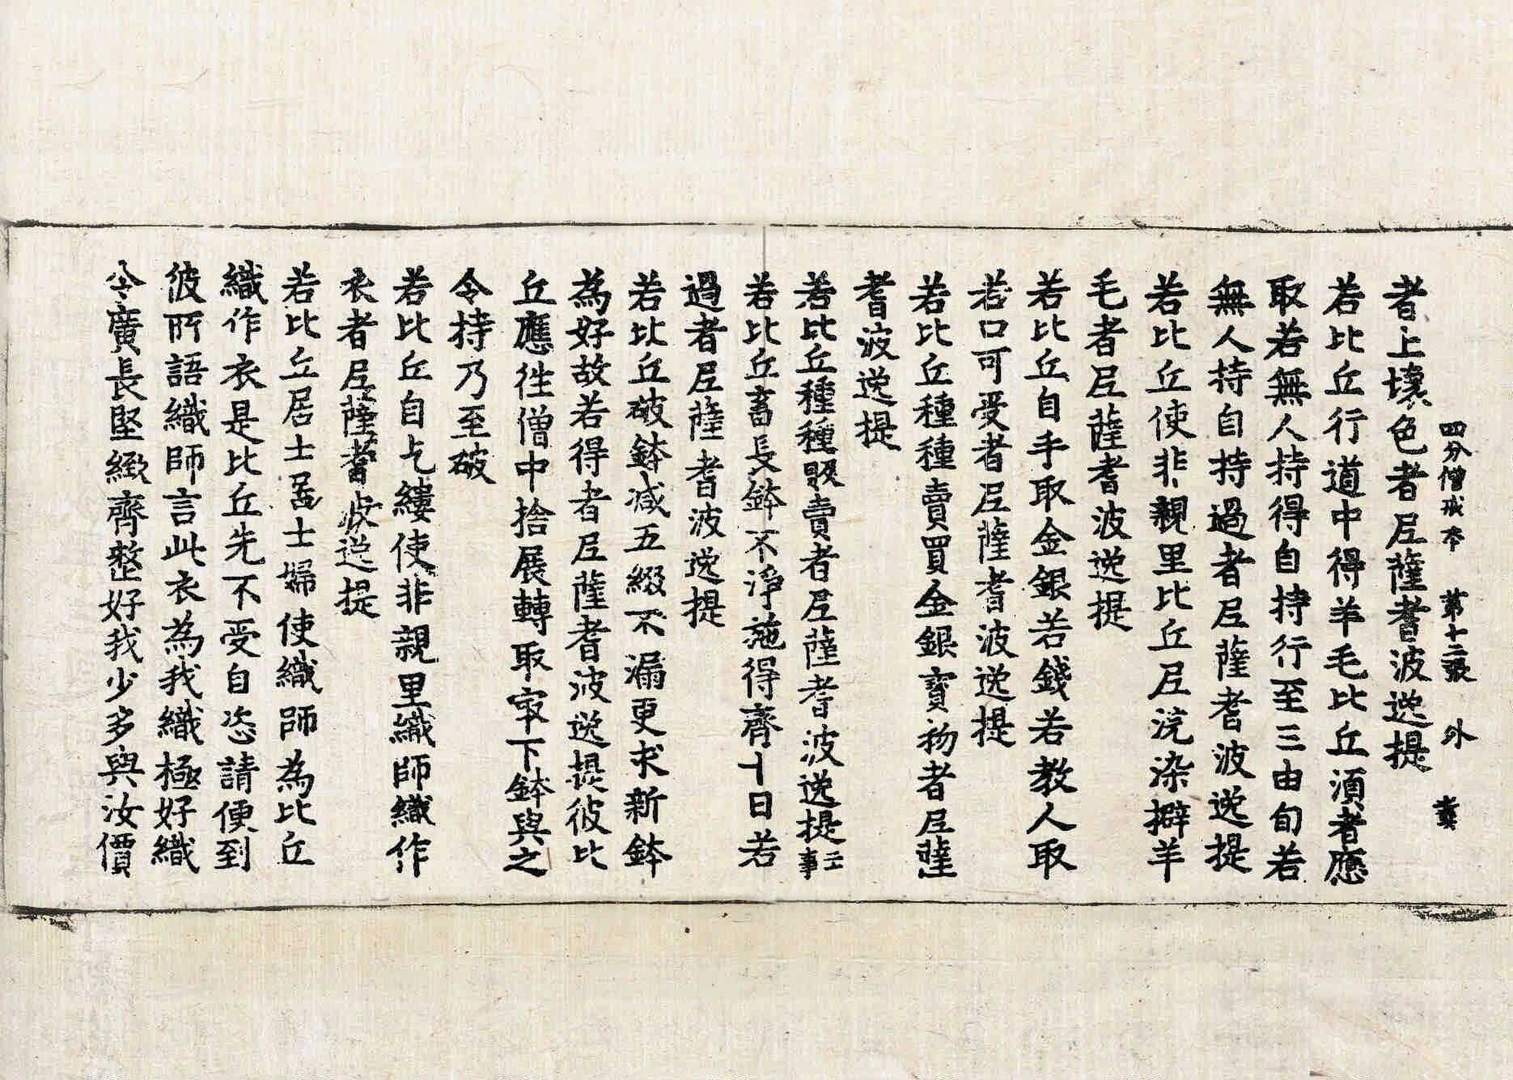 四分僧戒本 第十二張 外
者上壞色者尼薩耆波逸提
若比丘行道中得羊毛比丘須者應
取若無人持得自持行至三由旬若
無人持自持過者尼薩耆波逸提
若比丘使非親里比丘尼浣染擗羊
毛者尼薩耆波逸提
若比丘自手取金銀若錢若教人取
若口可受者尼薩耆波逸提
若比丘種種賣買金銀寶物者尼薩
耆波逸提
若比丘種種販賣者尼薩耆波逸提二事
若比丘畜長鉢不淨施得齊十日若
過者尼薩耆波逸提
若比丘破鉢減五綴不漏更求新鉢
為好故若得者尼薩耆波逸提彼比
丘應往僧中捨展轉取最下鉢與之
令持乃至破
若比丘自乞縷使非親里織師織作
衣者尼薩耆波逸提
若比丘居士居士婦使織師為比丘
織作衣是比丘先不受自恣請便到
彼所語織師言此衣為我織極好織
令廣長堅緻齊整好我少多與汝價